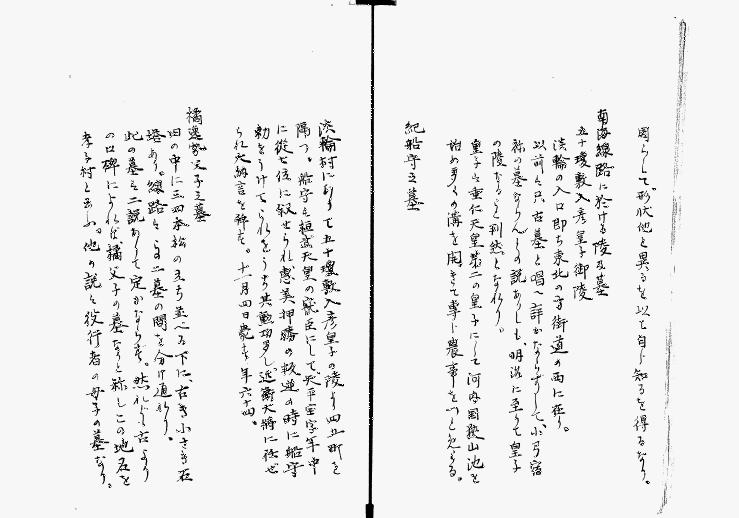 囲らして、形状他と異るを以て自ら知るを得るなり。
南海線路に於ける陵及墓
五十瓊敷入彦皇子御陵
淡輪の入口即ち東北の方街道の西に在り。
以前は只古墓と唱へ詳かならずして、小弓宿
祢の墓ならんとの説ありしも、明治に至りて皇子
の陵なること判然となれり。
皇子は垂仁天皇第二の皇子にして河内国狭山池を
始め多くの溝を開きて専ら農事を
紀船守之墓
淡輪村にありて五十瓊敷入彦皇子の陵より四五町を
隔つ。船守は桓武天皇の寵臣にして、天平宝字年中
に従七位に叙せられ恵美押勝の叛逆の時に船守
勅をうけて之れをうち其勲功多し、近衛大将に任ぜ
られ大納言を拝す。十一月四日薨す年六十四。
橘逸勢父子之墓
田の中に三四本松の立ち並べる下に、古き小さき石
塔あり。線路はこの二墓の間を分け通れり。
此の墓は二説ありて定かならず。然れども古より
の口碑によれば、橘父子の墓なりと称しこの地名を
孝子村と云ふ。他の説は役行者の母子の墓なり。